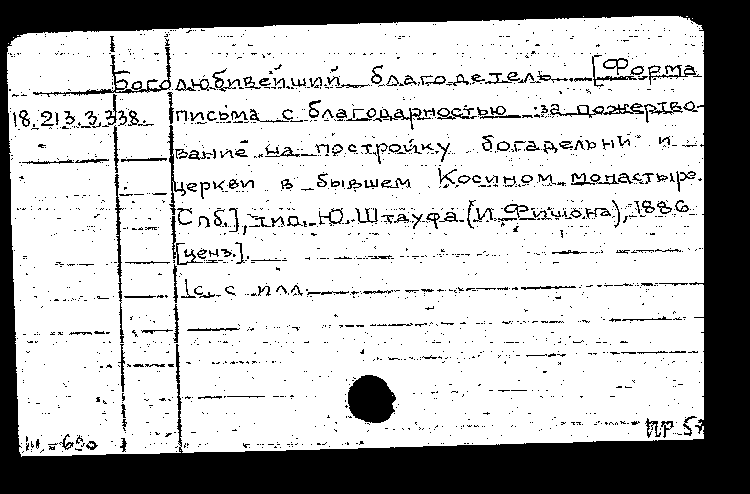 Боголюбивейший благодетель [Форма
18.213.3.338. письма с благодарностью за пожертво-
вание на постройку богадельни и
церкви в бывшем Косином монастыре.
Спб.], тип. Ю. Штауфа (И. Фишона), 1886
[ценз.].
1с. с илл.